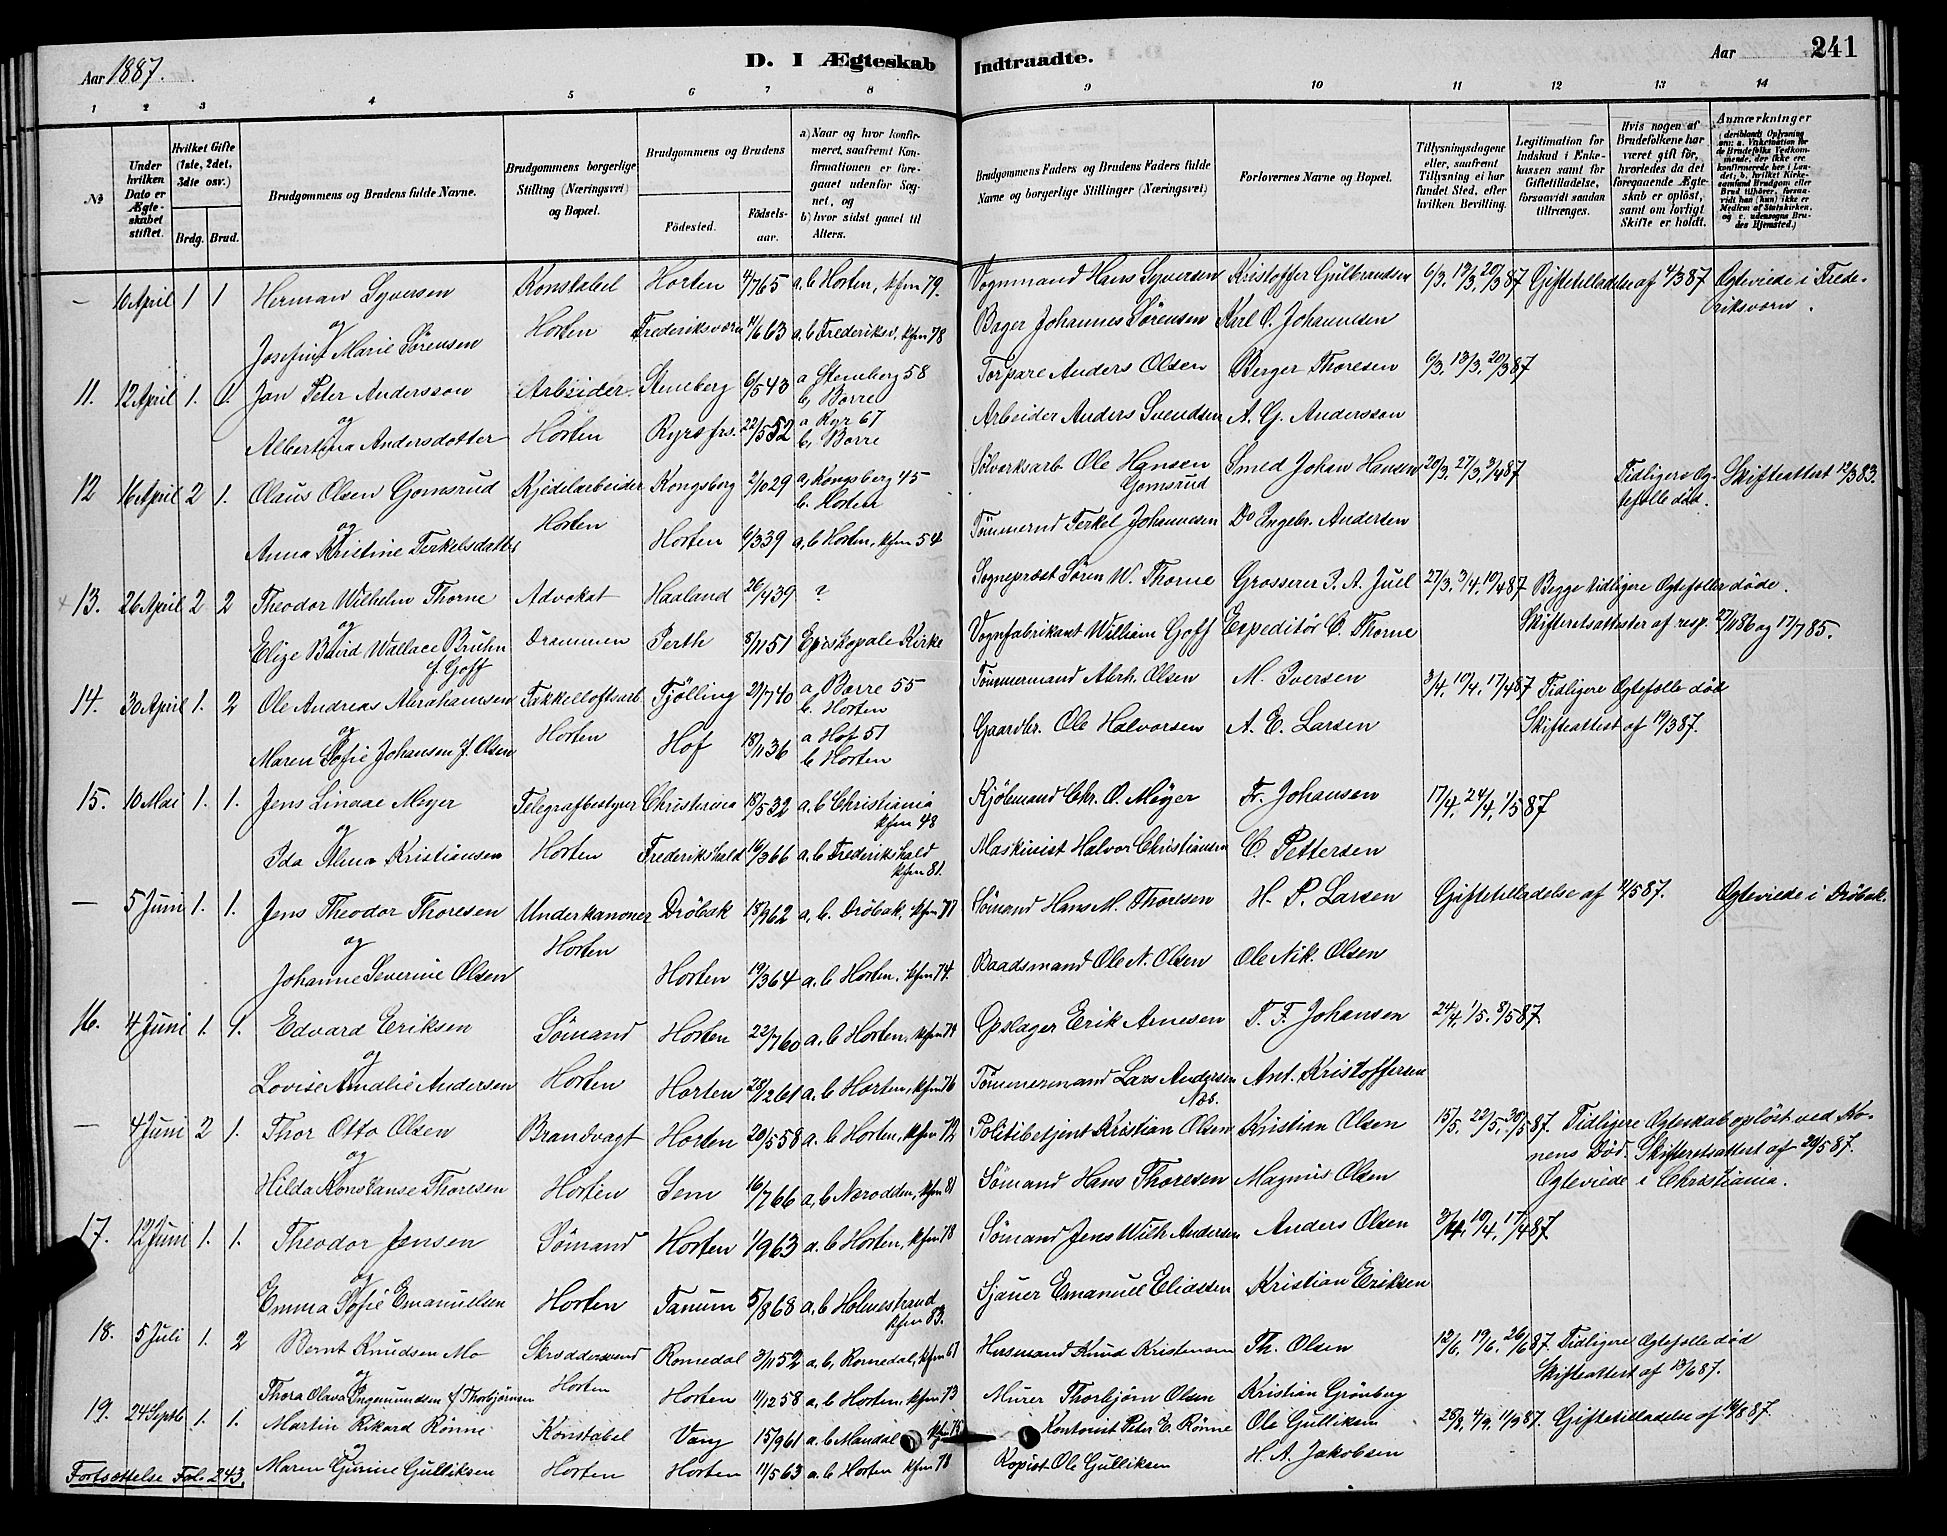 Aar 1887. D. I Ægteskab Indtraadte. Aar 241
1 2 3 4 5 6 7 8 9 10 11 12 13 14
No
Under hvilken Dato er Ægteskabet stiftet.
Hvilket Gifte (1ste, 2det, 3die osv.)
Brdg. Brud.
Brudgommens og Brudens fulde Navne.
Brudgommens borgerlige Stilling (Næringsvei) og Bopæl.
Brudgommens og Brudens
Födested. Födselsaar.
a) Naar og hvor konfirmeret, saafremt Konfirmationen er foregaaet udenfor Sognet, og
b) hvor sidst gaaet til Alters.
Brudgommens Faders og Brudens Faders fulde Navne og borgerlige Stillinger (Næringsvei)
Forlovernes Navne og Bopæl.
Tillysningsdagene eller, saafremt Tillysning ei har fundet Sted, efter hvilken Bevilling.
Legitimation for Indskud i Enkekassen samt for Giftetilladelse, forsaavidt saadan tiltrænges.
Hvis nogen af Brudefolkene har været gift för, hvorledes da det foregaaende Ægteskab er oplöst, samt om lovligt Skifte er holdt.
Anmærkninger (deriblandt Oplysning om: a. Vakcination for de Brudefolks Vedkommende, der ikke ere konfirmerede her i Landet; b. hvilket Kirkesamfund Brudgom eller Brud tilhörer, forsaavidt han (hun) ikke er Medlem af Statskirken, og c. udensogns Brudes Hjemsted.)
— 16 April 1 1 Herman Syversen Konstabel Horten 4/7 65 a, b Horten, kfm 79. Vognmand Hans Syversen Kristoffer Gulbrandsen 6/3. 13/3. 20/3 87 Giftetilladelse af 4/3 87 Ægteviede i Frederiksværn.
og
Josefine Marie Sørensen Horten Frederiksværn 11/6 63 a, b Frederiksv. kfm 78 Bager Johannes Sørensen Karl O. Johannesen
11. 12 April 1. 1. Jan Peter Andersson Arbeider Steneberg 6/5 43 a Steneberg 58 b, Borre Torpare Anders Olsen Berger Thoresen 6/3. 13/3. 20/3 87
og
Albertina Andersdotter Horten Ryrs frs. 22/5 52 a, Ryr 67 b, Borre Arbeider Anders Svendsen A. G. Andersson
12 16 April 2 1. Olaus Olsen Gomsrud Kjedelarbeider Kongsberg 2/10 29 a, Kongsberg 45 b. Horten Sølvverksarb. Ole Hansen Gomsrud Smed Johan Hansen 20/3. 27/3. 3/4 87 Tidligere Ægtefolle død. Skifteattest 12/3 83.
og
Anna Kristine Terkelsdatter Horten Horten 6/3 39 a, b Horten, kfm 54 Tømmermd Terkel Johannesen Do Ingebr. Andersen
13. 26 April 2 2 Theodor Wilhelm Thorne Advokat Haaland 26/4 39 ? Sogneprest Sören W. Thorne Grosserer P. A. Juel 27/3. 3/4. 10/4 87 Begge tidligere Ægtefoller døde.
og
Elize Baird Wallace Bruhn f. Goff Drammen Perth 8/11 51 Episkopale Kirke Vognfabrikant William Goff Expeditör C. Thorne Skifteretsattester af resp. 27/11 86 og 17/7 85.
14. 30 April 1. 2 Ole Andreas Abrahamsen Takkelloftsarb Tjølling 29/7 40 a Borre 55 b. Horten Tömmermand Abrh. Olsen M. Iversen 3/4. 10/4. 17/4 87 Tidligere Ægtefolle død
og
Maren Sofie Johansen f. Olsen Horten Hof 18/11 36 a Hof 51 b Horten Gaardbr. Ole Halvorsen A. E. Larsen Skifteattest af 19/3 87.
15. 10 Mai 1. 1. Jens Linaae Meyer Telegrafbestyrer Christiania 18/5 32 a, b Christiania kfm 48 Kjöbmand Chr. O. Meyer Fr. Johansen 17/4. 24/4. 1/5 87
og
Ida Alma Kristiansen Horten Frederikshald 16/3 66 a. b Frederikshald kfm 81. Maskinist Halvor Christiansen C. Pettersen
— 5 Juni 1. 1. Jens Theodor Thoresen Underkanoner Dröbak 18/9 62 a, b. Dröbak, kfm 77 Sömand Hans M. Thoresen H. P. Larsen Giftetilladelse af 11/5 87. Ægteviede i Dröbak.
og
Johanne Severine Olsen Horten Horten 19/3 64 a, b Horten, kfm 74. Baadsmand Ole N. Olsen Ole Nik. Olsen
16. 4 Juni 1. 1. Edvard Eriksen Sömand Horten 22/7 60 a, b Horten, kfm 74 Opslager Erik Arnesen T. F. Johansen 24/4. 1/5. 8/5 87.
og
Lovise Amalie Andersen Horten Horten 28/12 61 a, b Horten, kfm 76 Tømmermand Lars Andersen Næs. Ant. Kristoffersen
— 4 Juni 2 1. Thor Otto Olsen Brandvagt Horten 20/5 58 a. b Horten, kfm 72, Politibetjent Kristian Olsen Kristian Olsen 15/5. 22/5. 30/5 87. Tidligere Ægteskab oplöst ved Konens Död. Skifteretsattest af 20/5 87.
og
Hilda Konstanse Thoresen Horten Sem 16/7 66 a, b Nærodden, kfm 81 Sömand Hans Thoresen Magnus Olsen Ægteviede i Christiania.
17. 12 Juni 1. 1. Theodor Jensen Sömand Horten 1/9 63 a. b Horten, kfm 78 Sömand Jens Wilh Andersen Anders Olsen 3/4. 10/4. 17/4 87
og
Emma Sofie Emanuelsen Horten Tanum 5/8 68 a, b Holmestrand kfm 83. Sjauer Emanuel Eliassen Kristian Eriksen
18. 5 Juli 1. 2 Bernt Knudsen Mo Skræddersvend Romedal 3/11 52 a, b, Romedal, kfm 67 Husmand Knud Kristensen Th. Olsen 12/6. 19/6. 26/6 87. Tidligere Ægtefolle död
og
Thora Olava Ingemundsen f. Thorbjørnsen Horten Horten 11/12 58 a, b Horten, kfm 73 Murer Thorbjörn Olsen Kristian Grönberg Skifteattest af 13/6 87.
19. 24 Septb 1. 1. Martin Rikard Rønne Konstabel Vang 15/9 61 a. b Mandal kfm 78 Kontorist Peter E. Rønne Ole Gulliksen 28/8. 4/9. 11/9 87. Giftetilladelse af 16/8 87.
og
Maren Gurine Gulliksen Horten Horten 11/5 63 a. b Horten kfm 78 Kopist Ole Gulliksen H. A. Jakobsen
Fortsættelse Fol. 243.